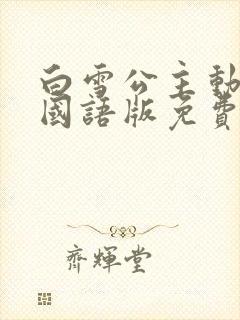 白雪公主動
國語版免費
齊輝堂